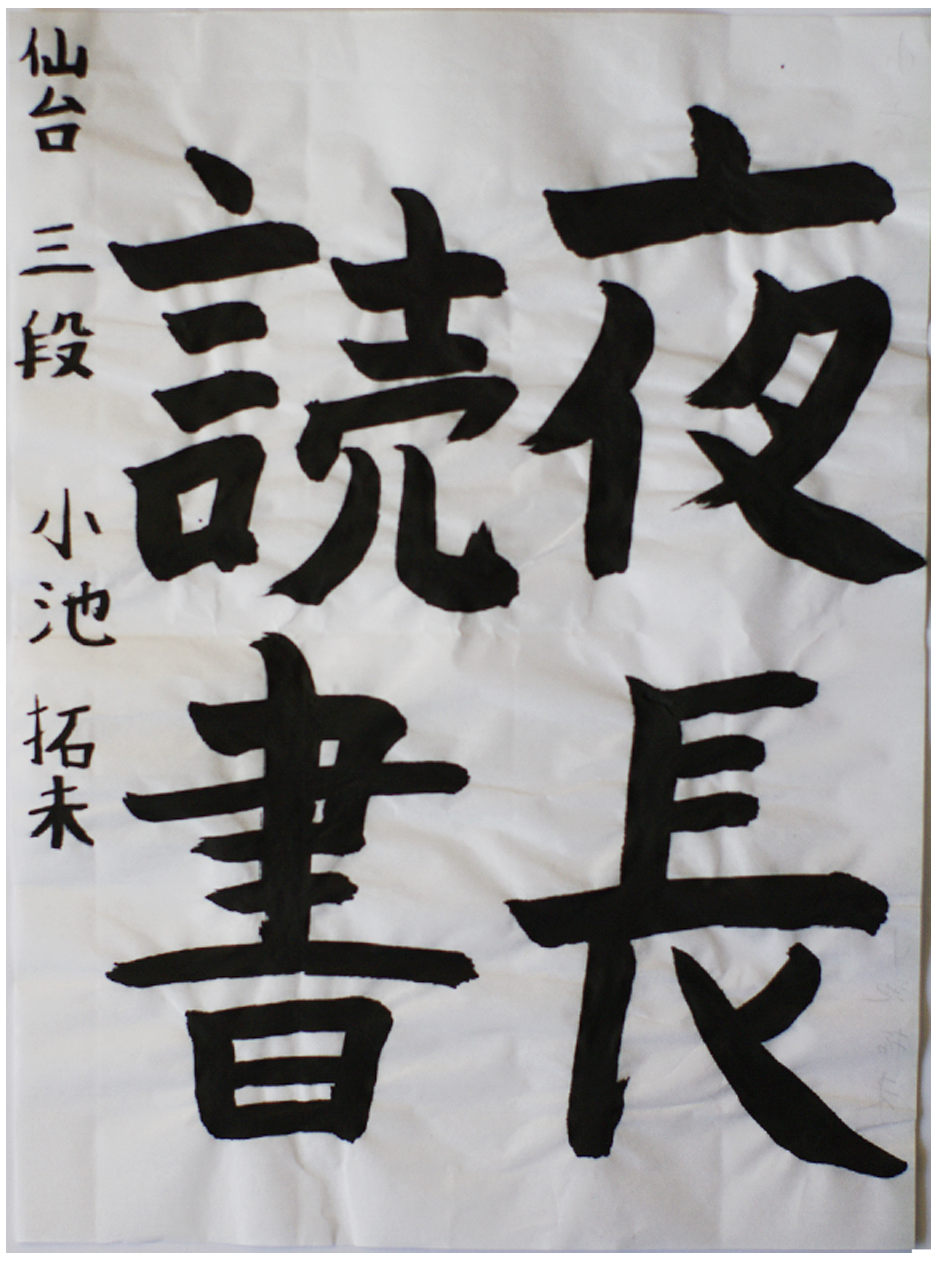 夜長
読書
仙台 三段 小池 拓未